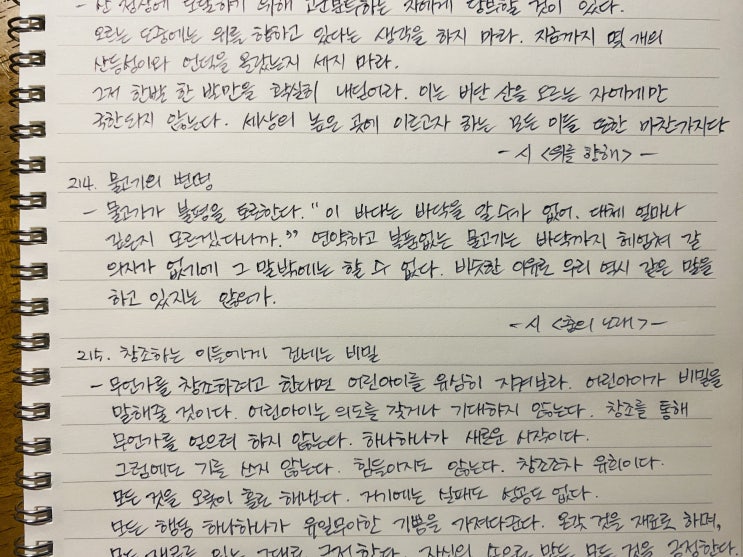 - 산 정상에 도달하기 위해 고군분투하는 자에게 당부할 것이 있다.
오르는 도중에는 위를 향하고 있다는 생각을 하지 마라. 지금까지 몇 개의
산등성이와 언덕을 올랐는지 세지 마라.
그저 한발 한 발만을 확실히 내딛어라. 이는 비단 산을 오르는 자에게만
국한되지 않는다. 세상의 높은 곳에 이르고자 하는 모든 이들 또한 마찬가지다
- 시 <위를 향해> -
214. 물고기의 변명
- 물고기가 불평을 토로한다. "이 바다는 바닥을 알 수가 없어. 대체 얼마나
깊은지 모르겠다니까." 연약하고 볼품없는 물고기는 바닥까지 헤엄쳐 갈
의지가 없기에 그 말밖에는 할 수 없다. 비슷한 이유로 우리 역시 같은 말을
하고 있지는 않은가.
- 시 <춤의 노래> -
215. 창조하는 이들에게 건네는 비밀
- 무언가를 창조하려고 한다면 어린아이를 유심히 지켜보라. 어린아이가 비밀을
말해줄 것이다. 어린아이는 의도를 갖거나 기대하지 않는다. 창조를 통해
무언가를 얻으려 하지 않는다. 하나하나가 새로운 시작이다.
그럼에도 기를 쓰지 않는다. 힘들이지도 않는다. 창조조차 유희이다.
모든 것을 오롯이 홀로 해낸다. 거기에는 실패도 성공도 없다.
모든 행동 하나하나가 유일무이한 기쁨을 가져다준다. 온갖 것을 재료로 하며,
모든 재료를 있는 그대로 긍정한다. 자신의 손으로 만든 모든 것을 긍정한다